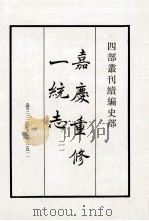 四部叢刊續編史部
嘉慶重修
一統志